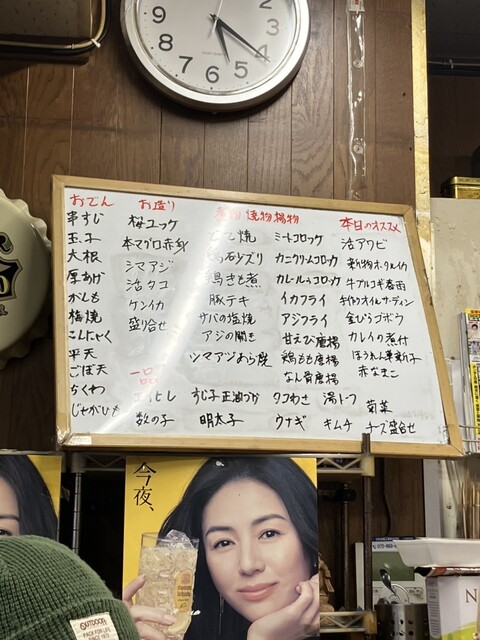 おでん
串すじ
玉子
大根
厚あげ
がんも
梅焼
こんにゃく
平天
ごぼ天
ちくわ
じゃがいも
お造り
桜ユッケ
本マグロ赤身
シマアジ
活タコ
ケンイカ
盛り合せ
一品
エイヒレ
数の子
焼物 揚物
どて焼
砂ズリ
鶏きも煮
豚テキ
サバの塩焼
アジの開き
シマアジあら焼
すじ子正油づけ
明太子
ミートコロッケ
カニクリームコロッケ
カレームコロッケ
イカフライ
アジフライ
甘えび唐揚
鶏もも唐揚
なん骨唐揚
タコわさ
湯トーフ
ウナギ
キムチ
本日のオススメ
活アワビ
新物ホタルイカ
牛プルコギ春雨
オイルサーディン
金ぴらゴボウ
カレイの煮付
赤なまこ
菊菜
チーズ盛合せ
今夜、
9
8
7
6
5
4
3
2
OUTDOOR
PACK FOR LIFE
SINCE 1973
N